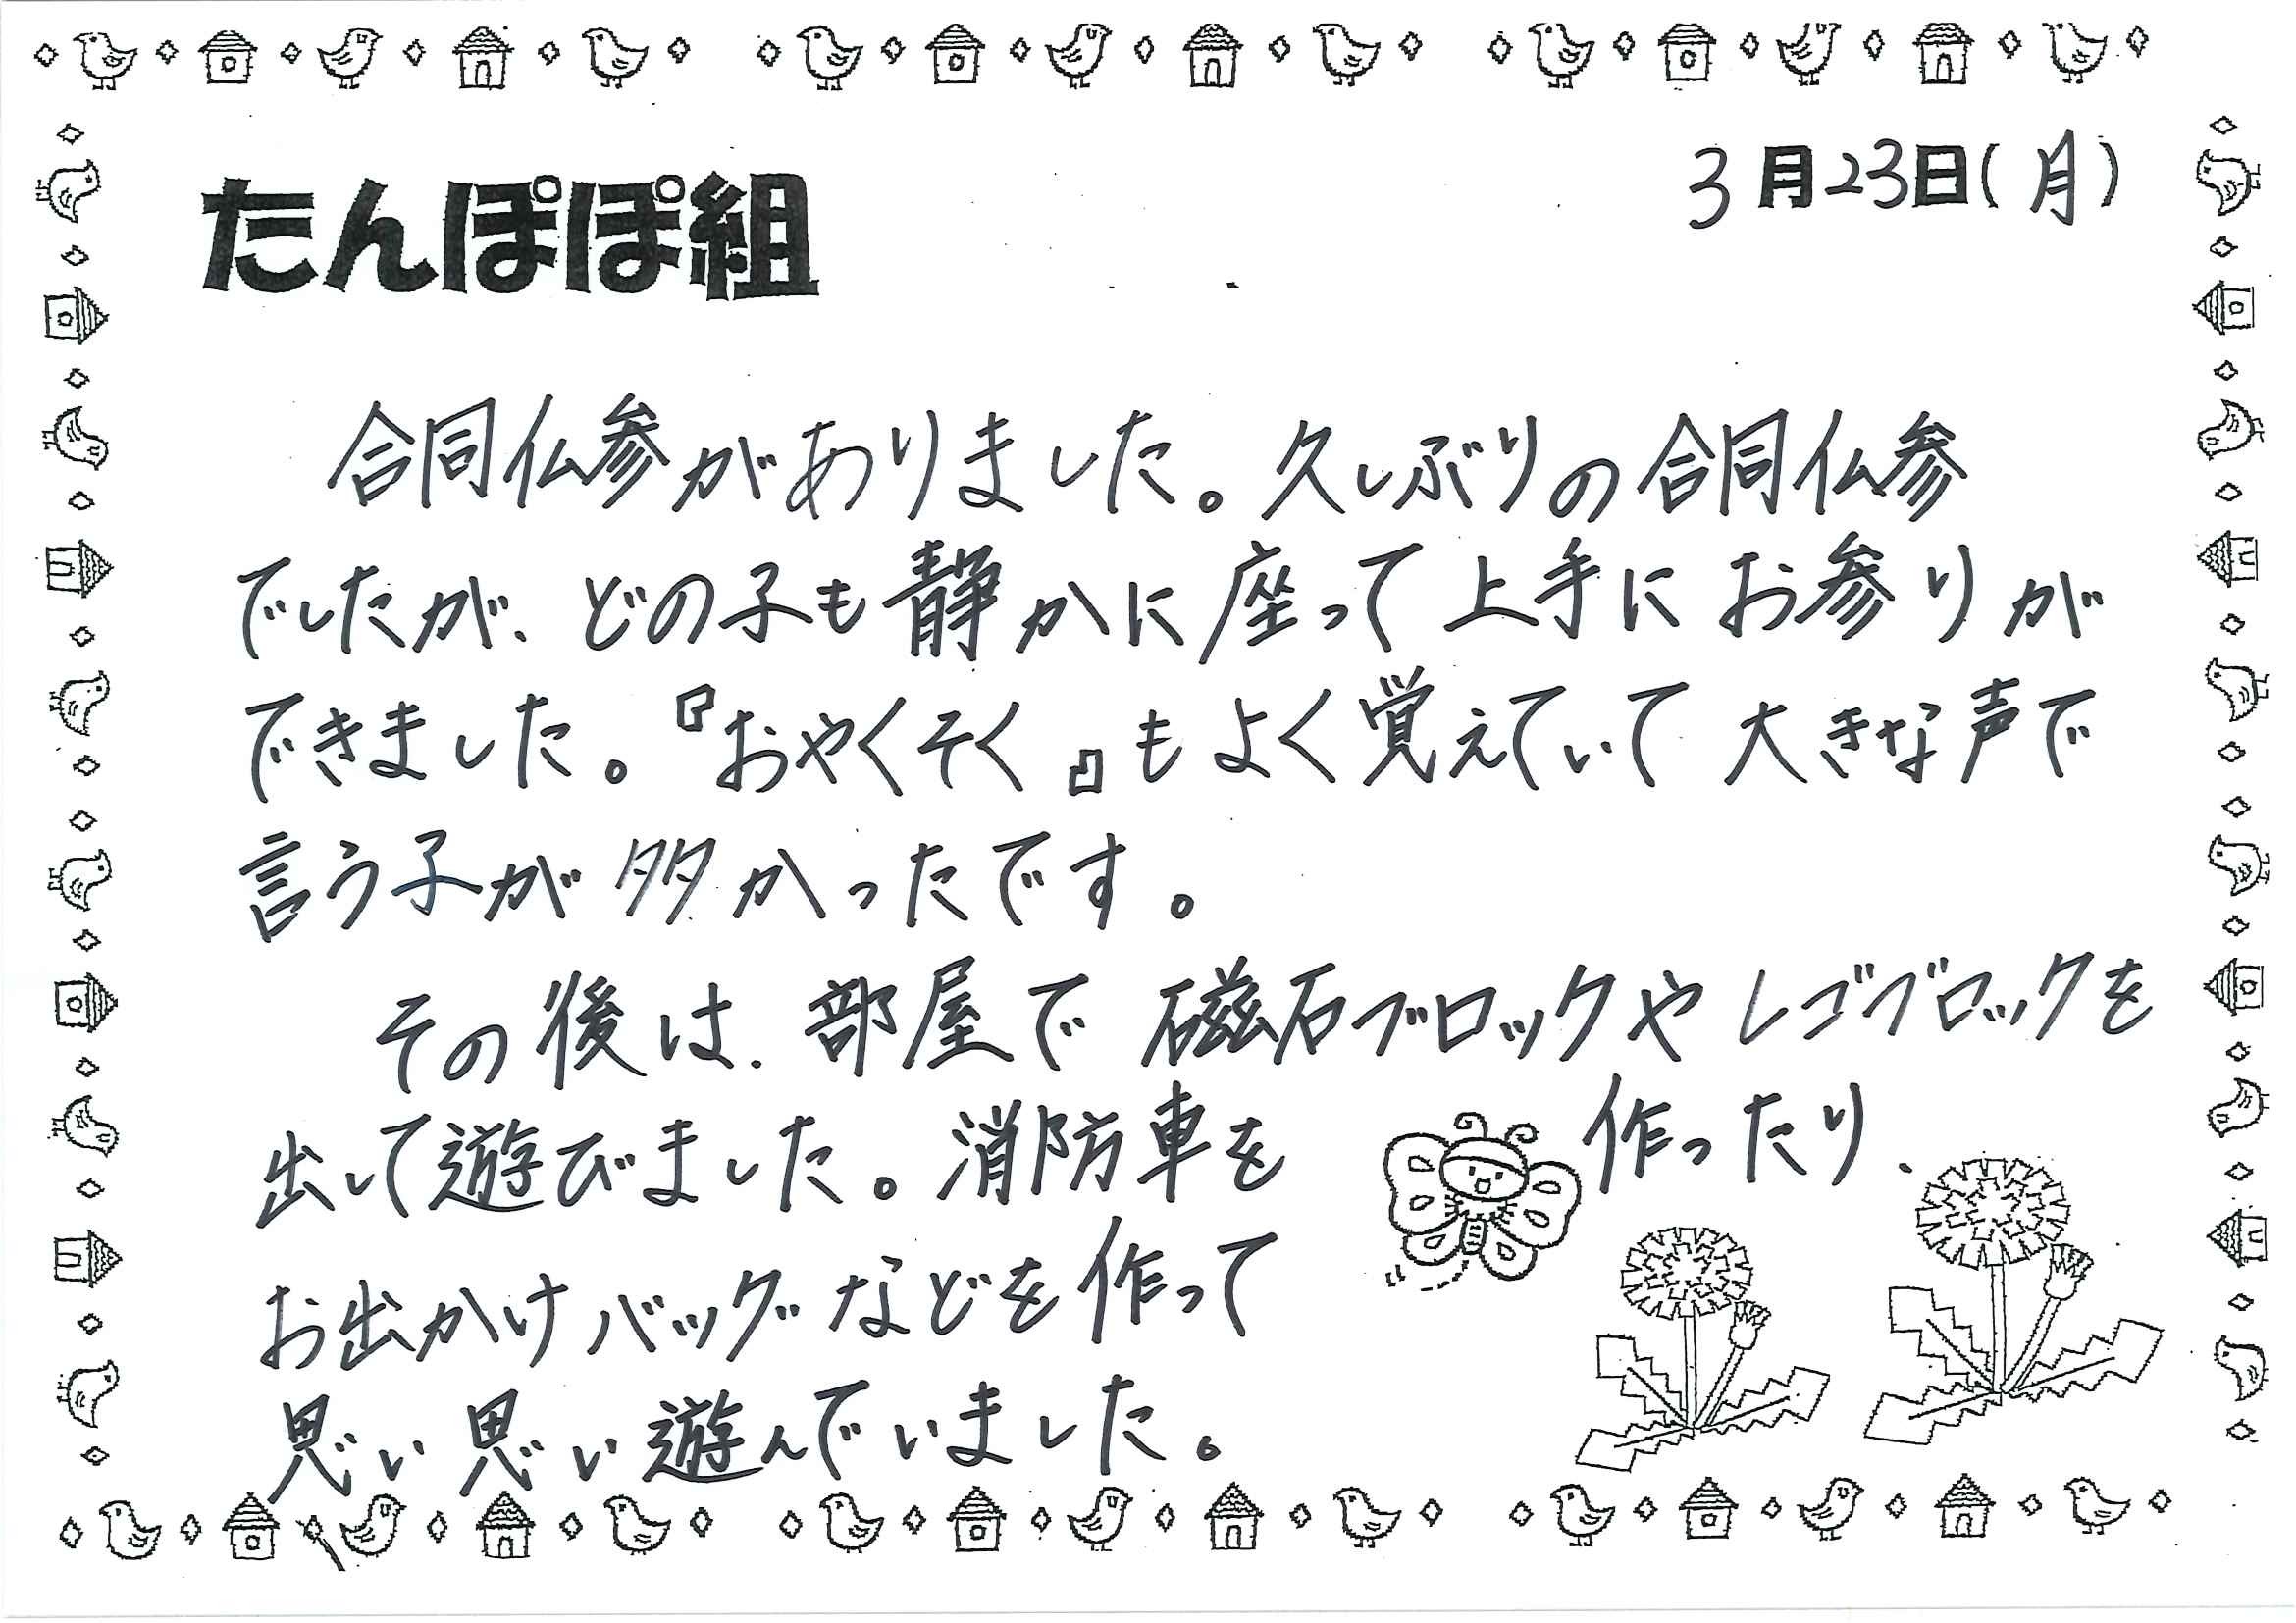 3月23日(月)
たんぽぽ組
合同仏参がありました。久しぶりの合同仏参
でしたが、どの子も静かに座って上手にお参りが
できました。『おやくそく』もよく覚えていて大きな声で
言う子が多かったです。
その後は、部屋で磁石ブロックやレゴブロックを
出して遊びました。消防車を作ったり、
お出かけバッグなどを作って
思い思い遊んでいました。